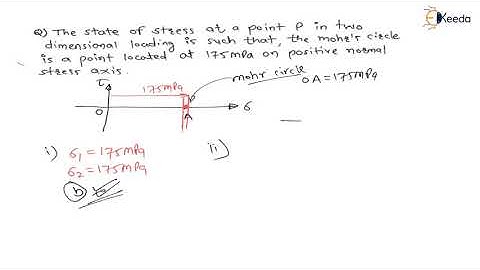 Ekeeda
Q) The state of stress at a point P in two
dimensional loading is such that, the mohr's circle
is a point located at 175MPa on positive normal
stress axis.
mohr circle
OA=175MPa
τ
175MPa
O
A
σ
i) σ1 = 175MPa
σ2 = 175MPa
ii)
b